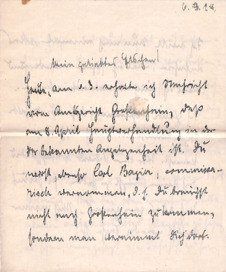 Mein geliebtes Elschen!
Heute, am 6.3. erhielt ich Nachricht
vom Amtsgericht Großenhain, daß
am 8. April Hauptverhandlung in der
Dir bekannten Angelegenheit ist. Du
wirst, ebenso Carl
vernommen, d. h. Du brauchst
nicht nach Großenhain zu kommen,
sondern man vernimmt Dich dort.